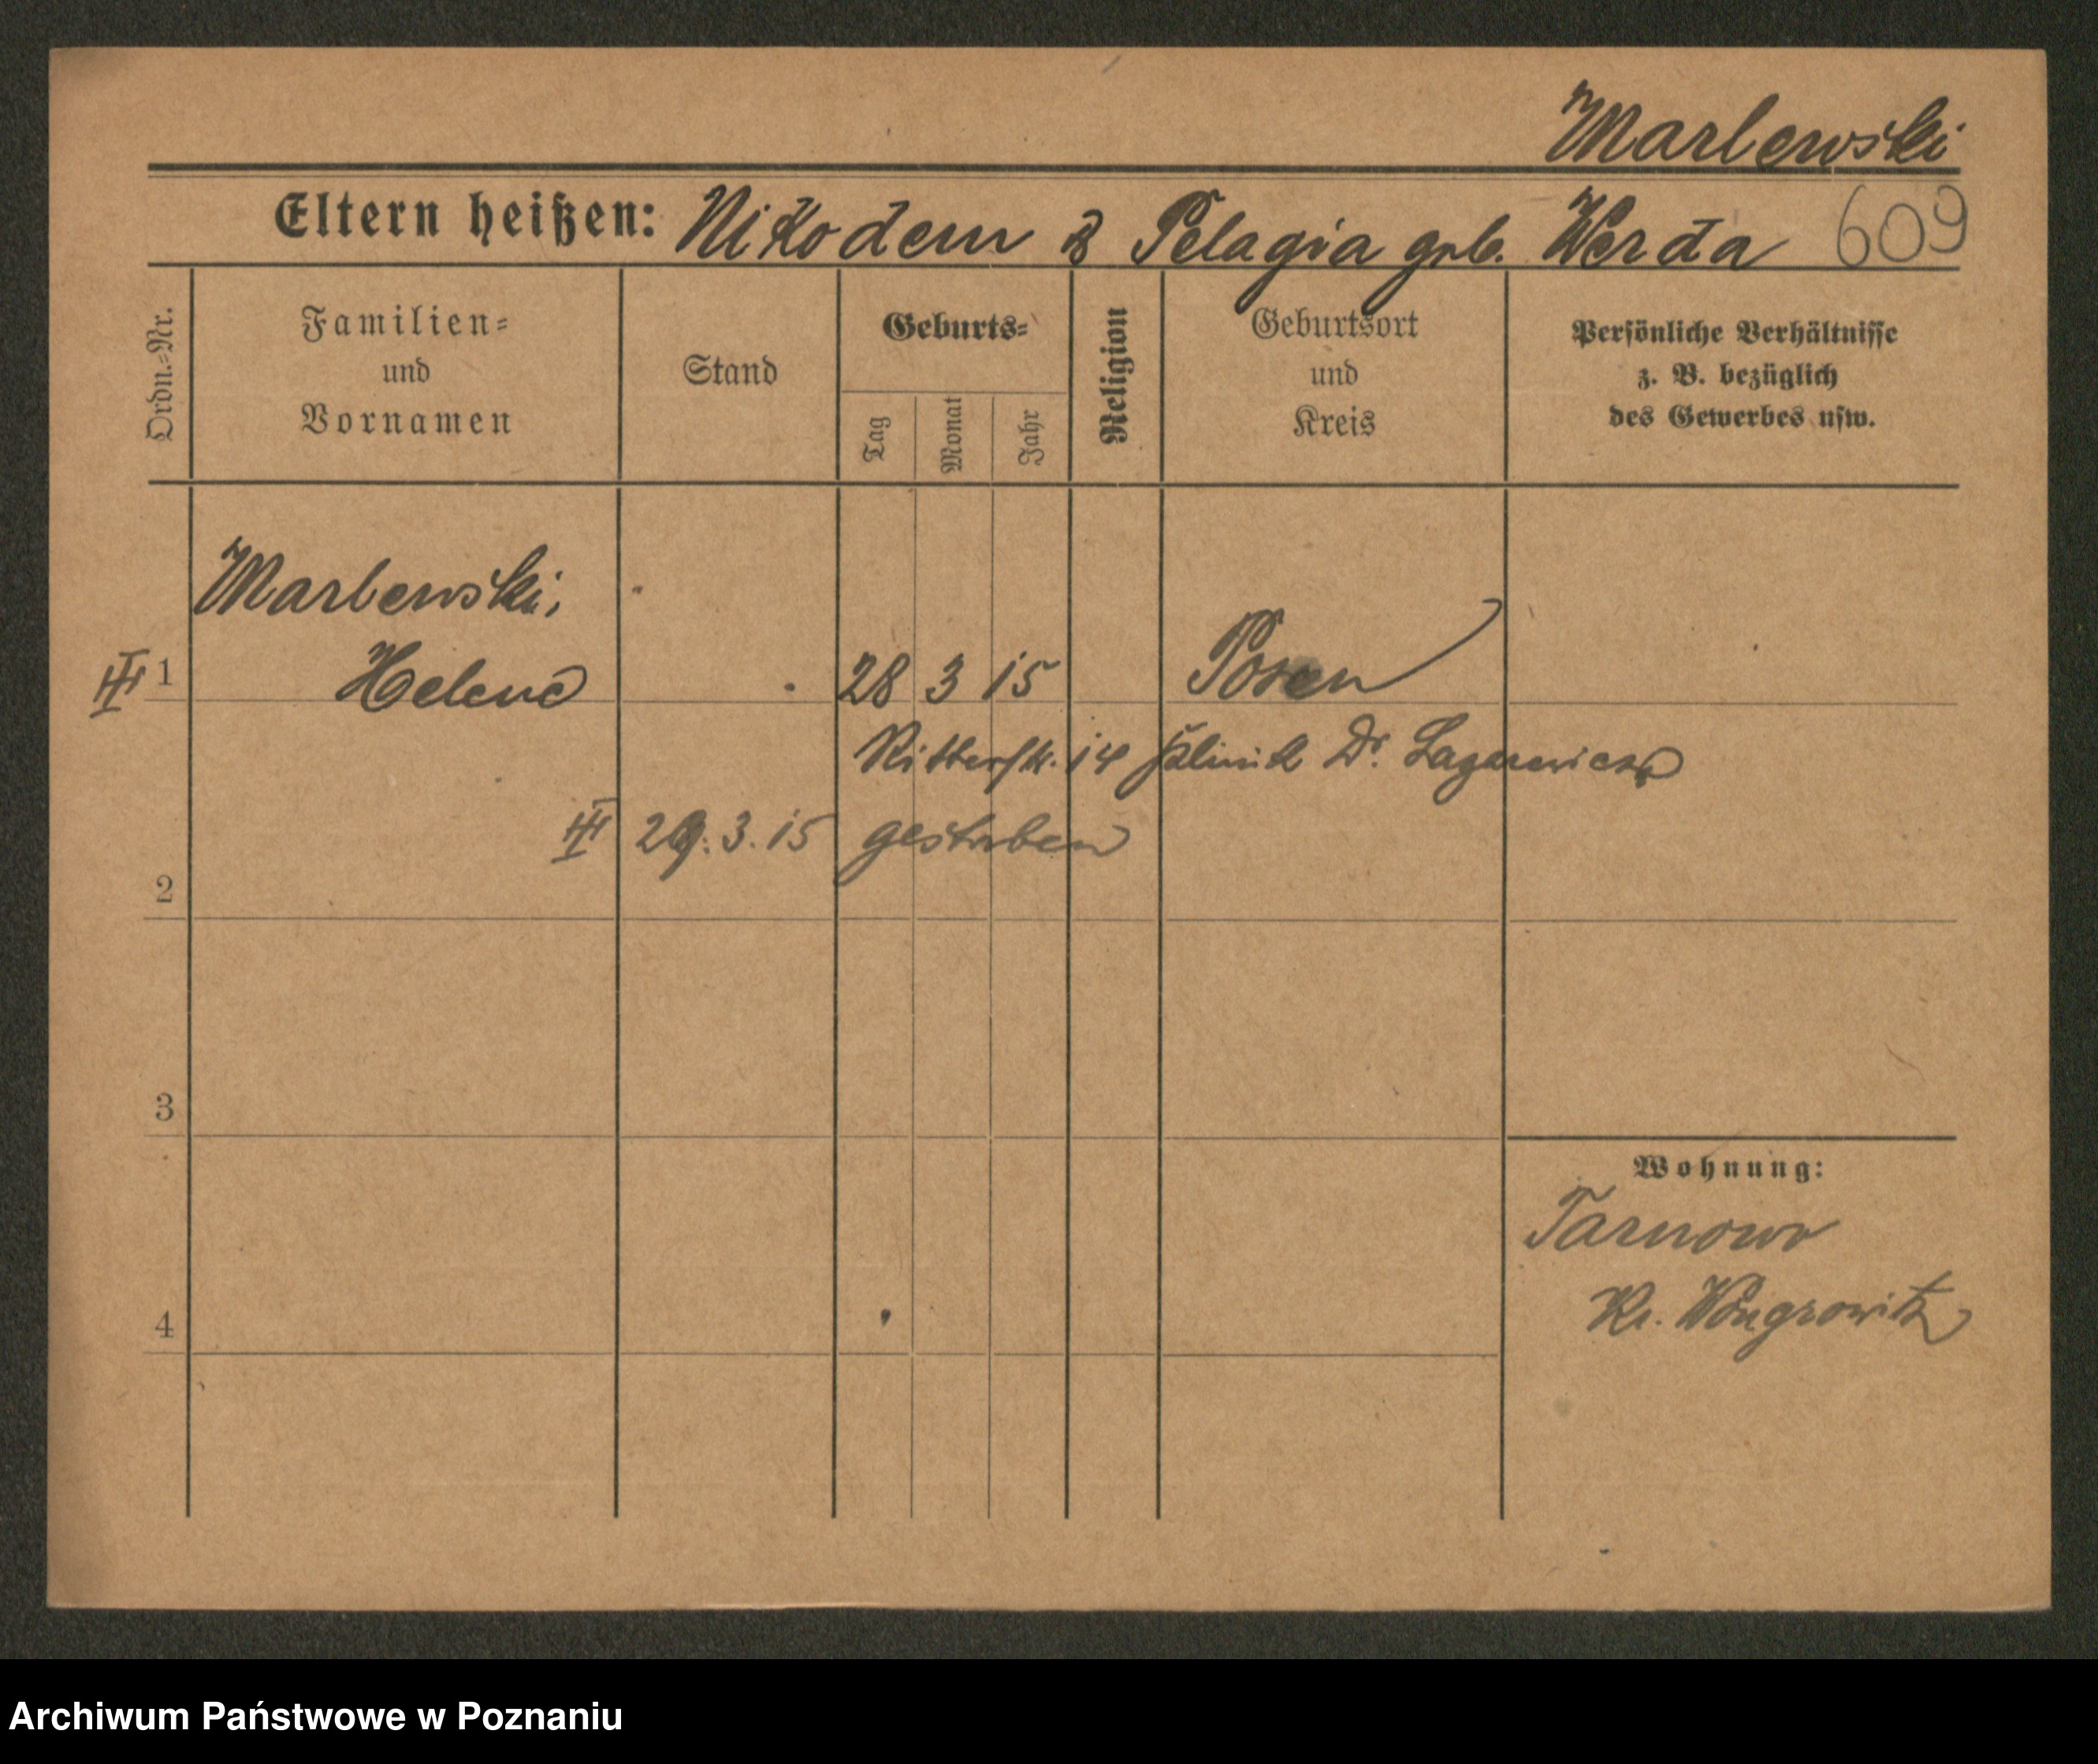 Marlewski
Eltern heißen: Nikodem & Pelagia geb. Werda 609
Ordn.-Nr.
Familien-
und
Vornamen
Stand
Geburts-
Tag
Monat
Jahr
Religion
Geburtsort
und
Kreis
Persönliche Verhältnisse
z. B. bezüglich
des Gewerbes usw.
Marlewski,
III 1 Helene 28 3 15 Posen
Ritterstr. 14 Klinik Dr. Lazarewicz
III 29. 3. 15 gestorben
2
3
Wohnung:
Tarnowo
Kr. Wongrowitz
4
Archiwum Państwowe w Poznaniu